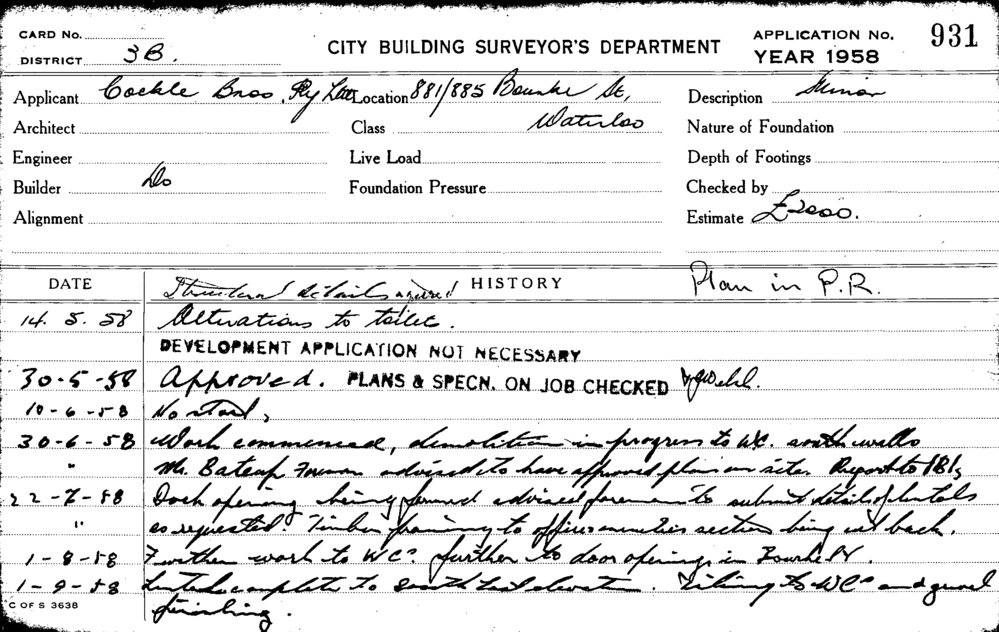 CARD No. APPLICATION No. 931
DISTRICT 3B. CITY BUILDING SURVEYOR'S DEPARTMENT YEAR 1958
Applicant Cockle Bros. Pty Ltd Location 881/885 Bourke St, Description Minor
Architect Class Waterloo Nature of Foundation
Engineer Live Load Depth of Footings
Builder Do Foundation Pressure Checked by
Alignment Estimate £2000.
DATE Structural details required HISTORY Plan in P.R.
14. 5. 58 Alterations to toilet.
DEVELOPMENT APPLICATION NOT NECESSARY
30-5-58 Approved. PLANS & SPECN. ON JOB CHECKED
10-6-58 No start,
30-6-58 Work commenced, demolition in progress to W.C. south walls
" Mr. advised to have approved plan on site. Report to
22-7-58 Door opening being formed advised foreman to submit details of lintels
" as requested Timber framing to office amenities section being cut back.
1-8-58 Further work to WCs further to door openings in Bourke St.
1-9-58 complete to south elevation. to WCs and general
C OF S 3638 finishing.